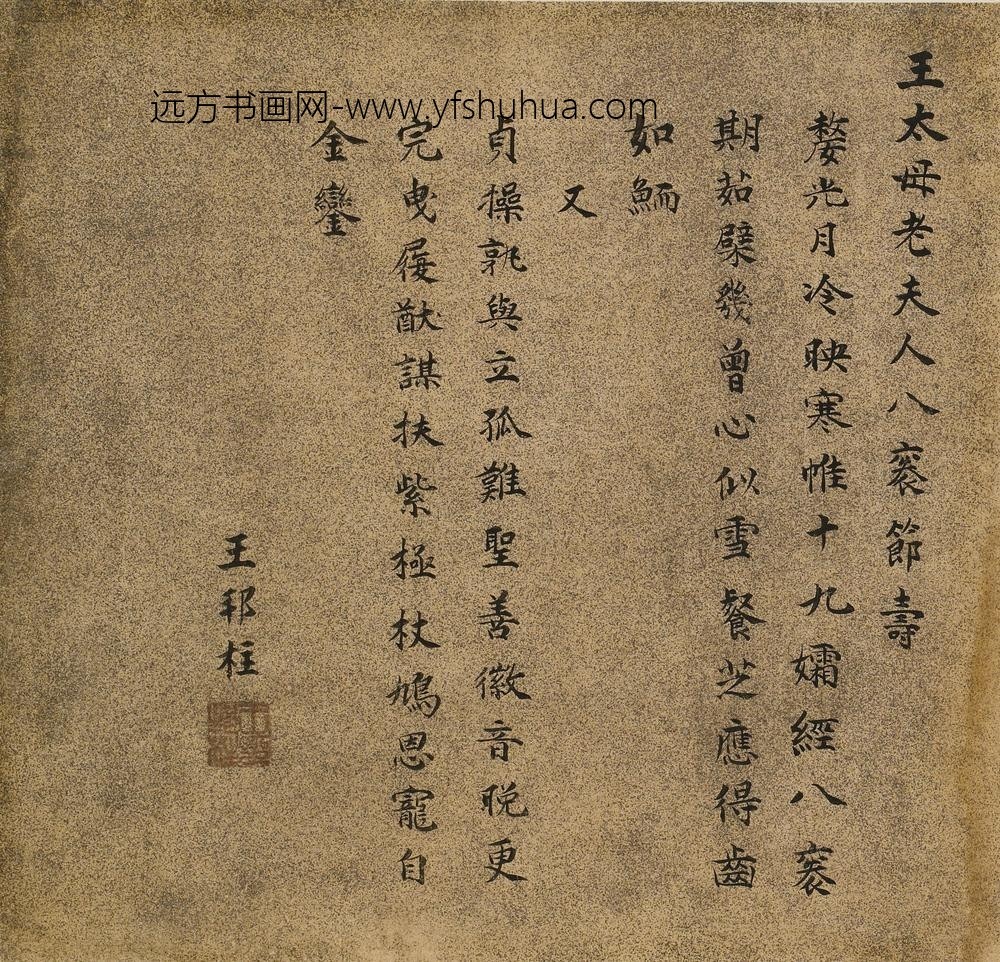 远方书画网-www.yfshuhua.com
王太母老夫人八袠節壽
嫠光月冷映寒帷十九孀經八袠
期茹檗幾曾心似雪餐芝應得齒
如鮞
又
貞操孰與立孤難聖善徽音晚更
完曳履猷謀扶紫極杖鳩恩寵自
金鑾
王邦柱